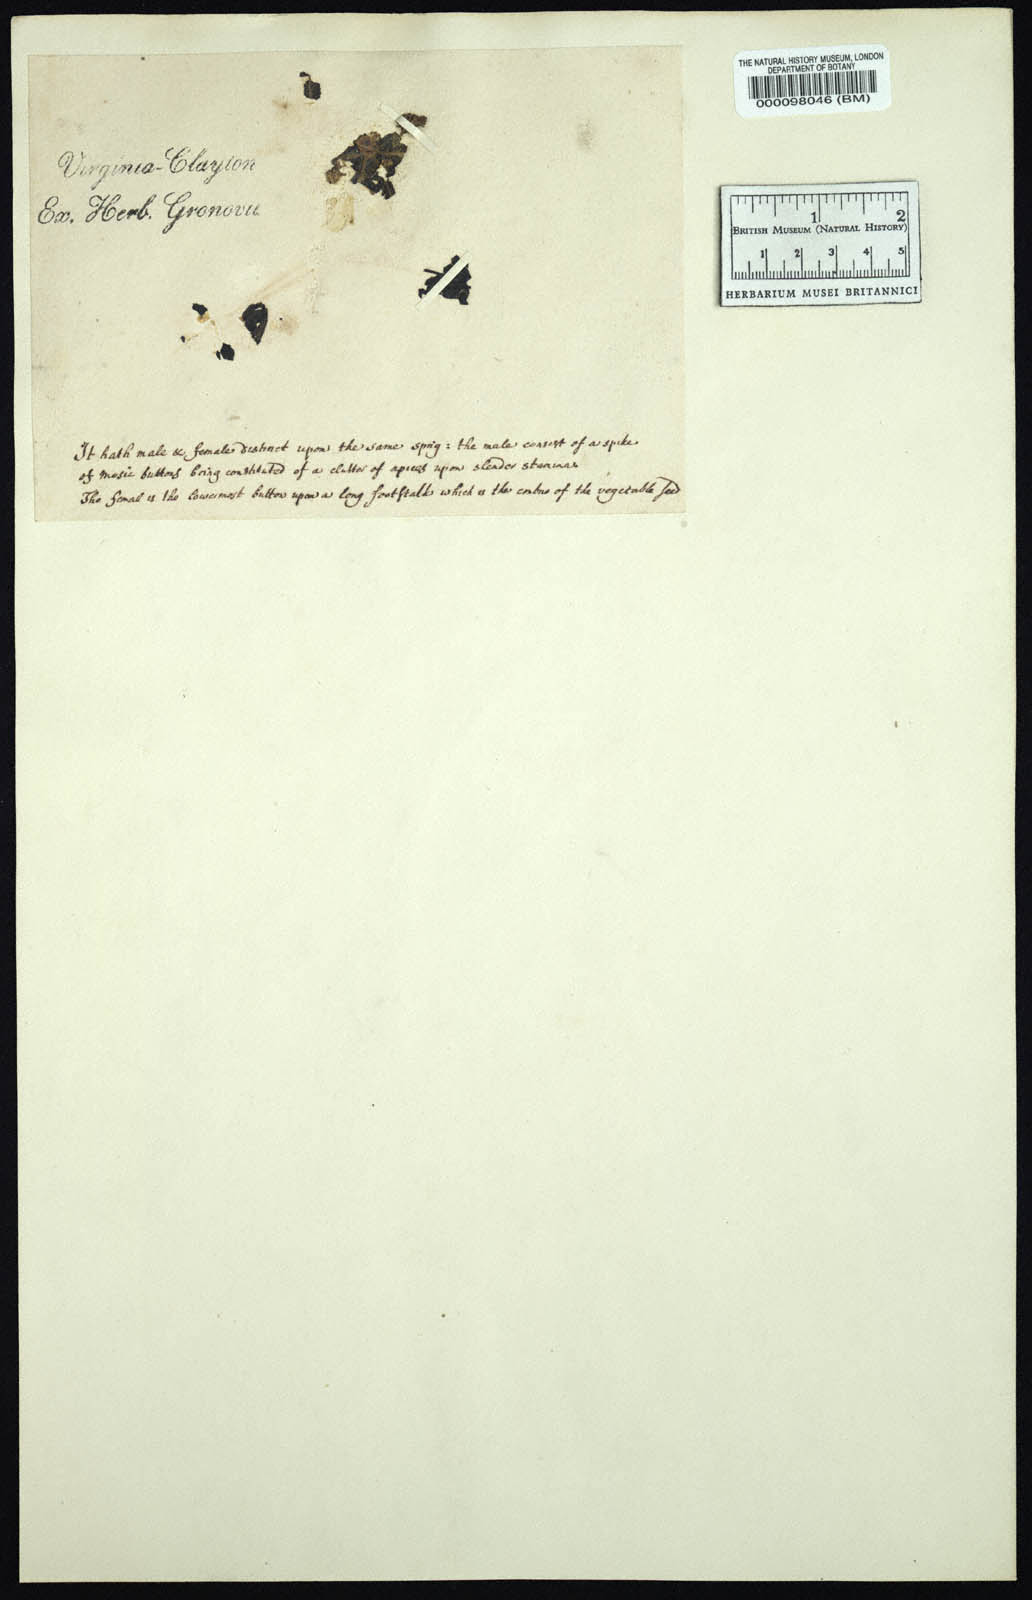 THE NATURAL HISTORY MUSEUM, LONDON
DEPARTMENT OF BOTANY
000098046 (BM)
Virginia-Clayton
Ex. Herb. Gronovii
1 2
BRITISH MUSEUM (NATURAL HISTORY)
1 2 3 4 5
HERBARIUM MUSEI BRITANNICI
It hath male & female distinct upon the same sprig: the male consist of a spike
of mosie buttons being constituted of a cluster of apices upon slender stamina
The femal is the lowermost button upon a long footstalk which is the embrio of the vegetable seed